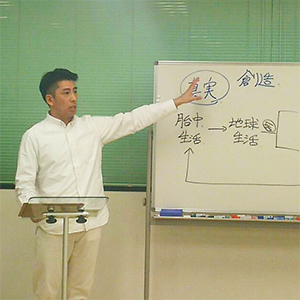 真実
創造
胎中 → 地球
生活 生活